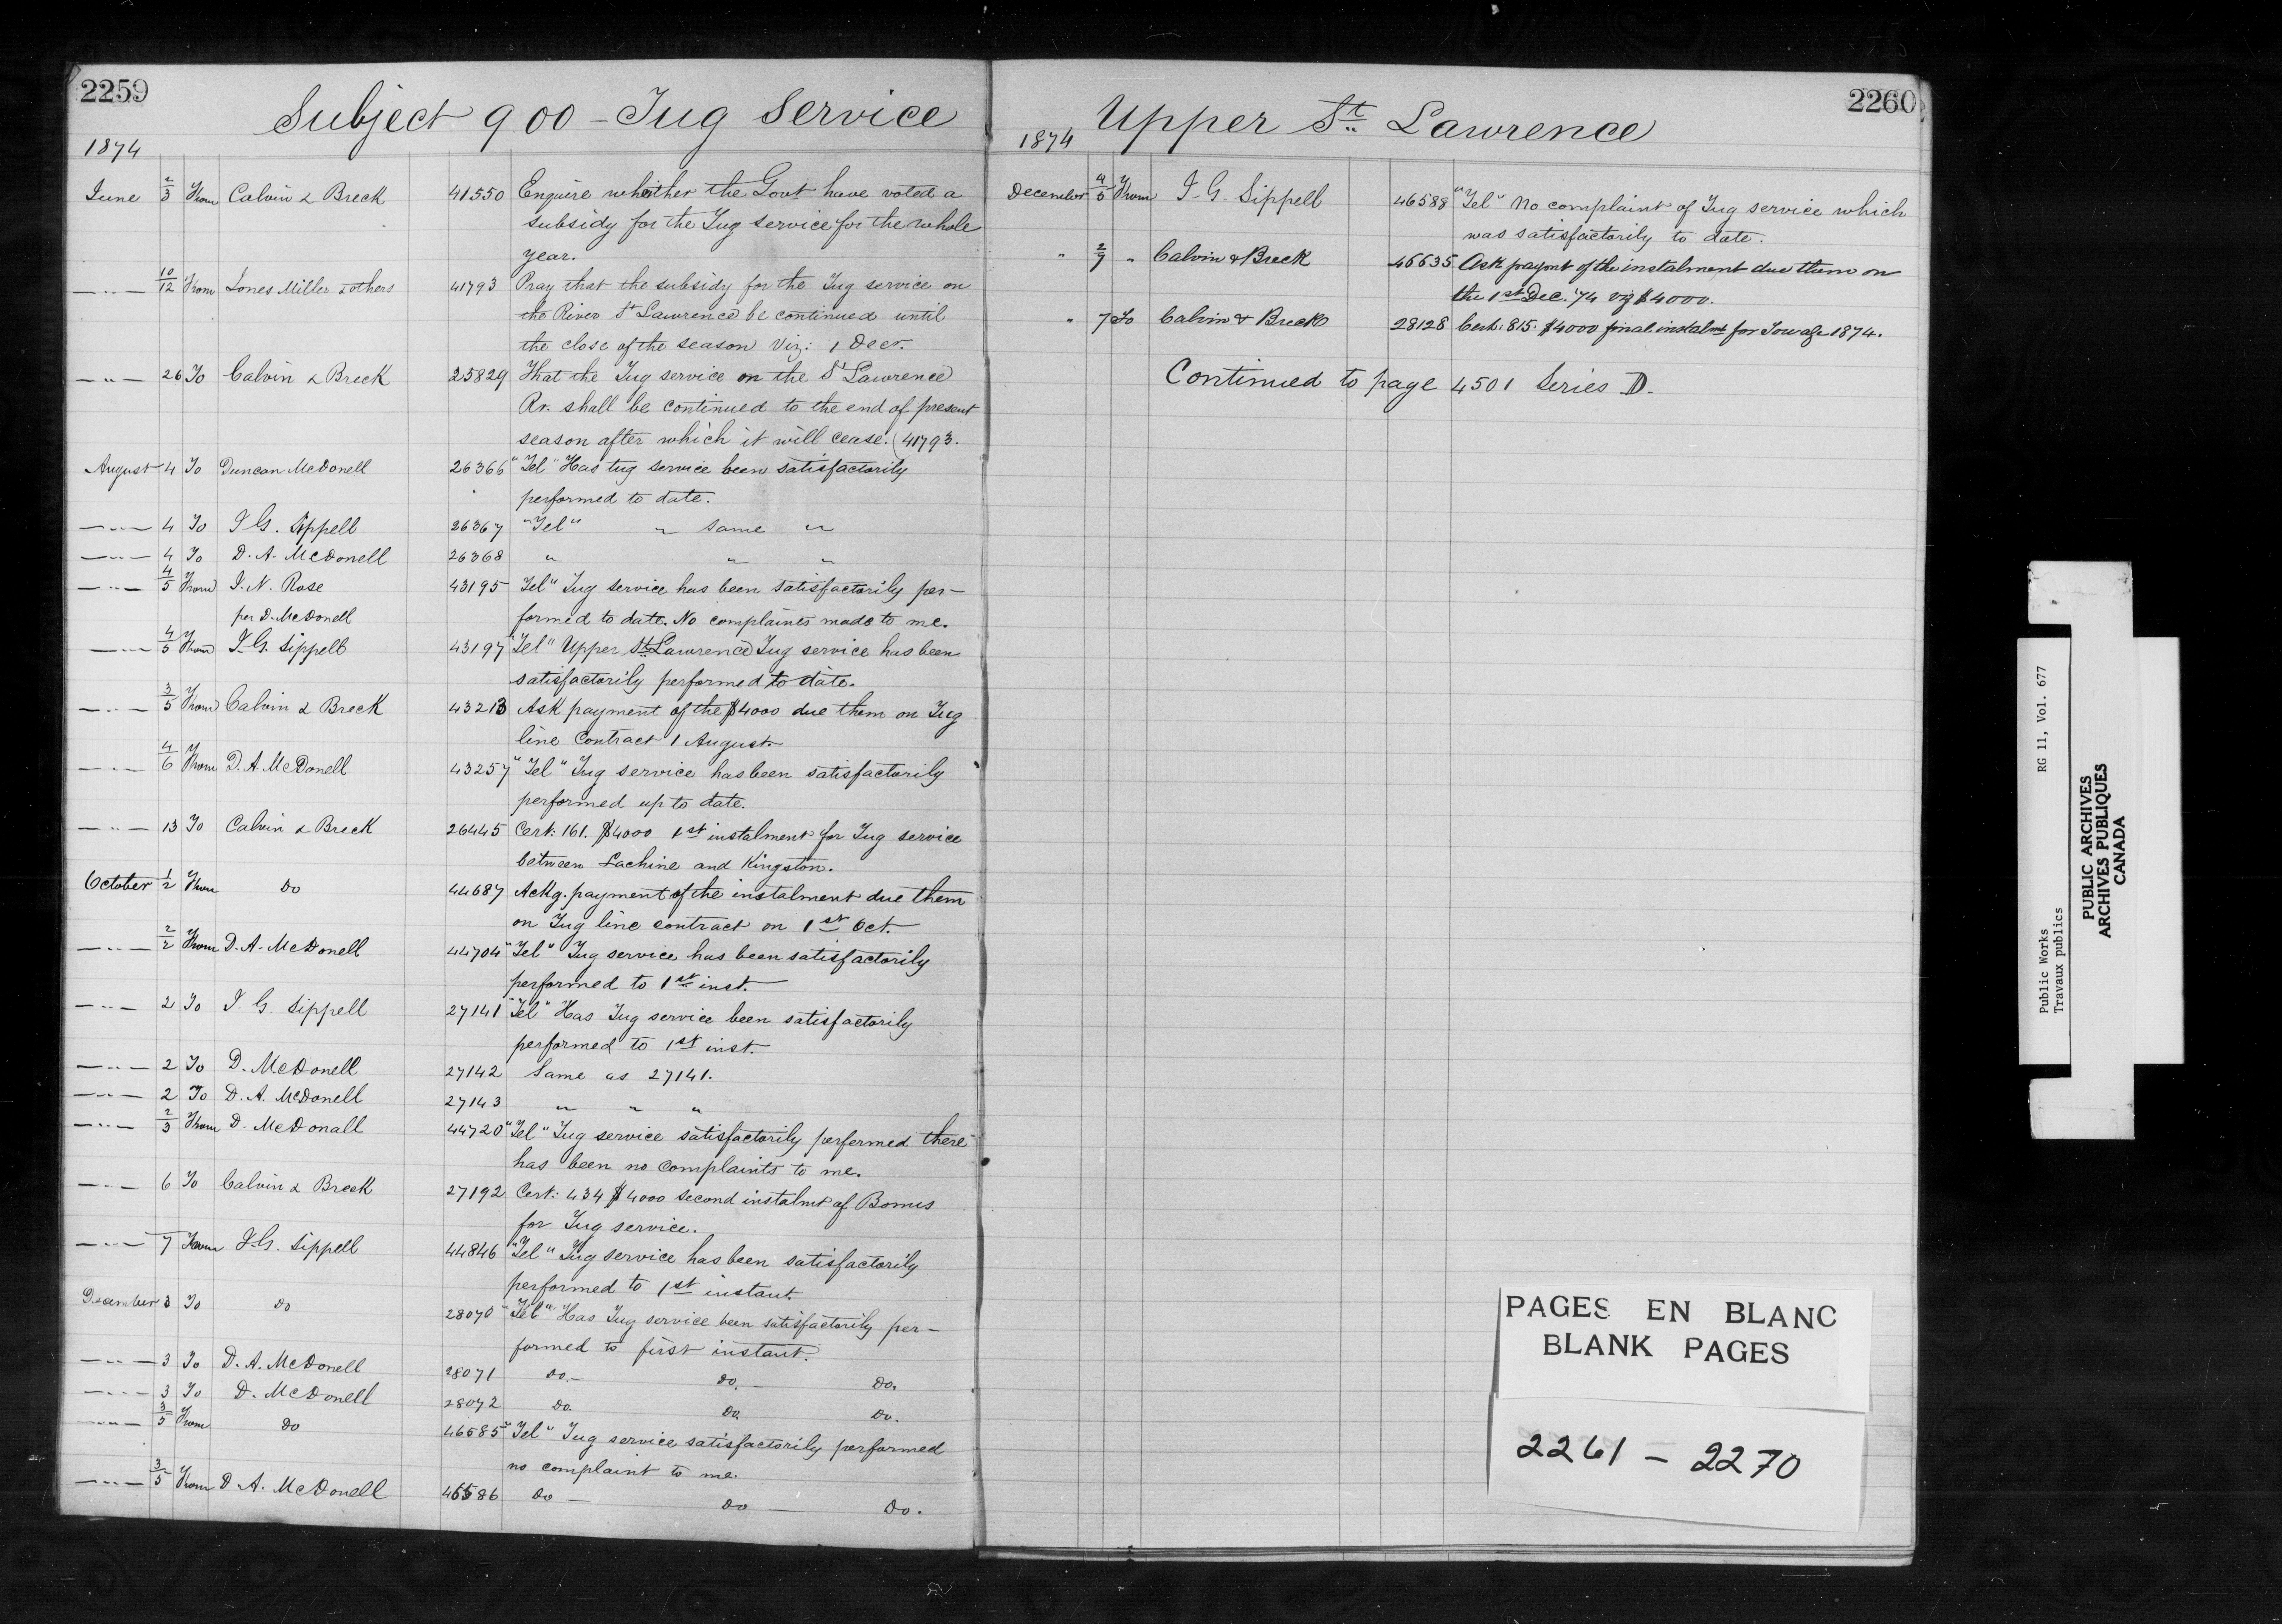 2259
Subject 900 – Tug Service
1874
June 2/3 From Calvin & Breck 41550 Enquire whether the Govt have voted a
subsidy for the Tug service for the whole
year.
—"— 10/12 From Jones Miller & others 41793 Pray that the subsidy for the Tug service on
the River St Lawrence be continued until
the close of the season Viz: 1 Decr.
—"— 26 To Calvin & Breck 25829 That the Tug service on the St Lawrence
Rr. shall be continued to the end of present
season after which it will cease. (41793.
August 4 To Duncan McDonell 26366 "Tel" Has tug service been satisfactorily
performed to date.
—"— 4 To J G. Sippell 26367 "Tel" " Same "
—"— 4 To D. A. McDonell 26368 " " "
—"— 4/5 From J. N. Rose 43195 Tel" Tug service has been satisfactorily per-
per D. McDonell formed to date. No complaints made to me.
—"— 4/5 From J. G. Sippell 43197 "Tel" Upper St. Lawrence Tug service has been
satisfactorily performed to date.
—"— 3/5 From Calvin & Breck 43213 Ask payment of the $4000 due them on Tug
line Contract 1 August.
—"— 4/6 From D. A. McDonell 43257 "Tel" Tug service has been satisfactorily
performed up to date.
—"— 13 To Calvin & Breck 26445 Cert: 161. $4000 1st instalment for Tug service
between Lachine and Kingston.
October 1/2 From Do 44687 Ackg. payment of the instalment due them
on Tug line contract on 1st Oct.
—"— 2/2 From D. A. McDonell 44704 "Tel" Tug service has been satisfactorily
performed to 1st inst.
—"— 2 To J. G. Sippell 27141 "Tel" Has Tug service been satisfactorily
performed to 1st inst.
—"— 2 To D. McDonell 27142 Same as 27141.
—"— 2 To D. A. McDonell 27143 " " "
—"— 2/3 From D. McDonall 44720 "Tel" Tug service satisfactorily performed there
has been no complaints to me.
—"— 6 To Calvin & Breck 27192 Cert: 434 $4000 second instalmt of Bonus
for Tug service.
—"— 7 From J. G. Sippell 44846 "Tel" Tug service has been satisfactorily
performed to 1st instant.
December 3 To Do 28070 "Tel" Has Tug service been satisfactorily per-
formed to first instant.
—"— 3 To D. A. McDonell 28071 Do. — Do. — Do.
—"— 3 To D. McDonell 28072 Do. Do. Do.
—"— 3/5 From Do 46585 "Tel" Tug service satisfactorily performed
no complaint to me.
—"— 3/5 From D. A. McDonell 46586 Do — Do — Do.
2260
Upper St. Lawrence
1874
December 4/5 From J. G. Sippell 46588 "Tel" No complaint of Tug service which
was satisfactorily to date.
" 2/9 " Calvin & Breck 46635 Ask paymt of the instalment due them on
the 1st Dec. '74 viz $4000.
" 7 To Calvin & Breck 28128 Cert: 815. $4000 final instalmt for Towage 1874.
Continued to page 4501 Series D.
PAGES EN BLANC
BLANK PAGES
2261 – 2270
RG 11, Vol. 677
Public Works
Travaux publics
PUBLIC ARCHIVES
ARCHIVES PUBLIQUES
CANADA